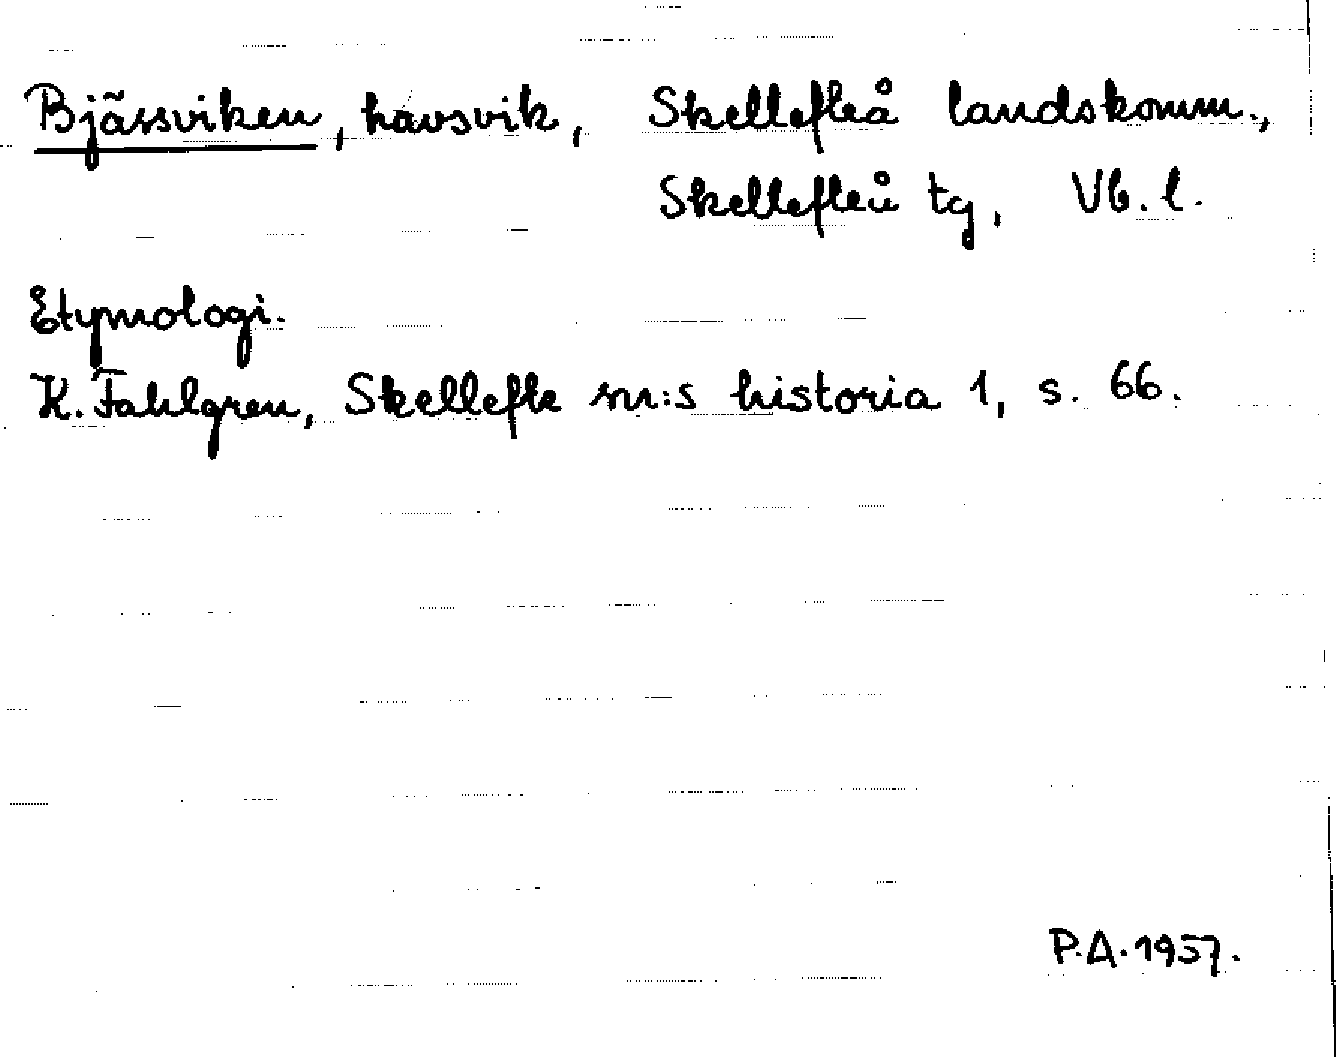 Bjässviken, havsvik, Skellefteå landskomm.,
Skellefteå tg, Vb. l.
Etymologi.
K. Fahlgren, Skellefte sn:s historia 1, s. 66.
P.A. 1957.